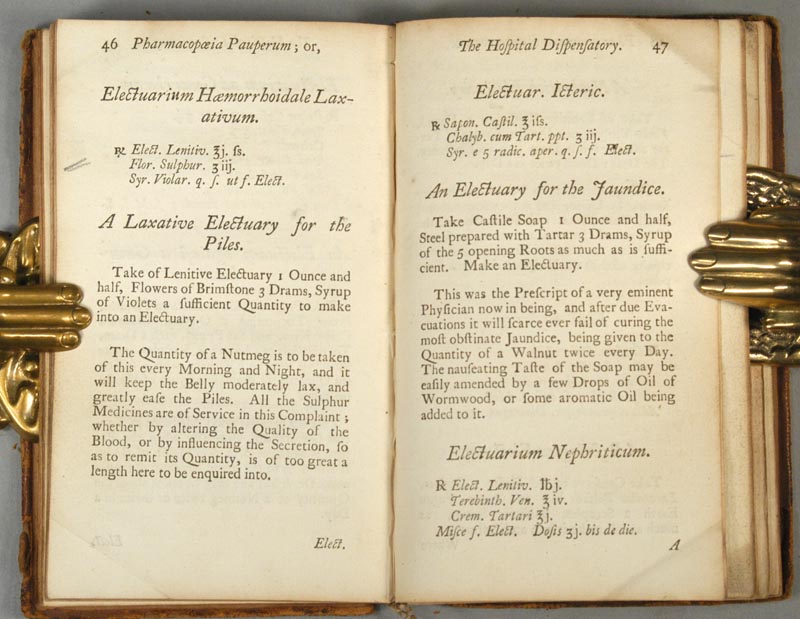 46 Pharmacopœia Pauperum; or,
Electuarium Hæmorrhoidale Lax-
ativum.
℞ Elect. Lenitiv. ℥j. ſs.
Flor. Sulphur. ʒ iij.
Syr. Violar. q. ſ. ut f. Elect.
A Laxative Electuary for the
Piles.
Take of Lenitive Electuary 1 Ounce and
half, Flowers of Brimſtone 3 Drams, Syrup
of Violets a ſufficient Quantity to make
into an Electuary.
The Quantity of a Nutmeg is to be taken
of this every Morning and Night, and it
will keep the Belly moderately lax, and
greatly eaſe the Piles. All the Sulphur
Medicines are of Service in this Complaint;
whether by altering the Quality of the
Blood, or by influencing the Secretion, ſo
as to remit its Quantity, is of too great a
length here to be enquired into.
Elect.
The Hoſpital Diſpenſatory. 47
Electuar. Icteric.
℞ Sapon. Caſtil. ℥ iſs.
Chalyb. cum Tart. ppt. ʒ iij.
Syr. e 5 radic. aper. q. ſ. f. Elect.
An Electuary for the Jaundice.
Take Caſtile Soap 1 Ounce and half,
Steel prepared with Tartar 3 Drams, Syrup
of the 5 opening Roots as much as is ſuffi-
cient. Make an Electuary.
This was the Preſcript of a very eminent
Phyſician now in being, and after due Eva-
cuations it will ſcarce ever fail of curing the
moſt obſtinate Jaundice, being given to the
Quantity of a Walnut twice every Day.
The nauſeating Taſte of the Soap may be
eaſily amended by a few Drops of Oil of
Wormwood, or ſome aromatic Oil being
added to it.
Electuarium Nephriticum.
℞ Elect. Lenitiv. ℔j.
Terebinth. Ven. ℥ iv.
Crem. Tartari ℥j.
Miſce f. Elect. Doſis ʒj. bis de die.
A